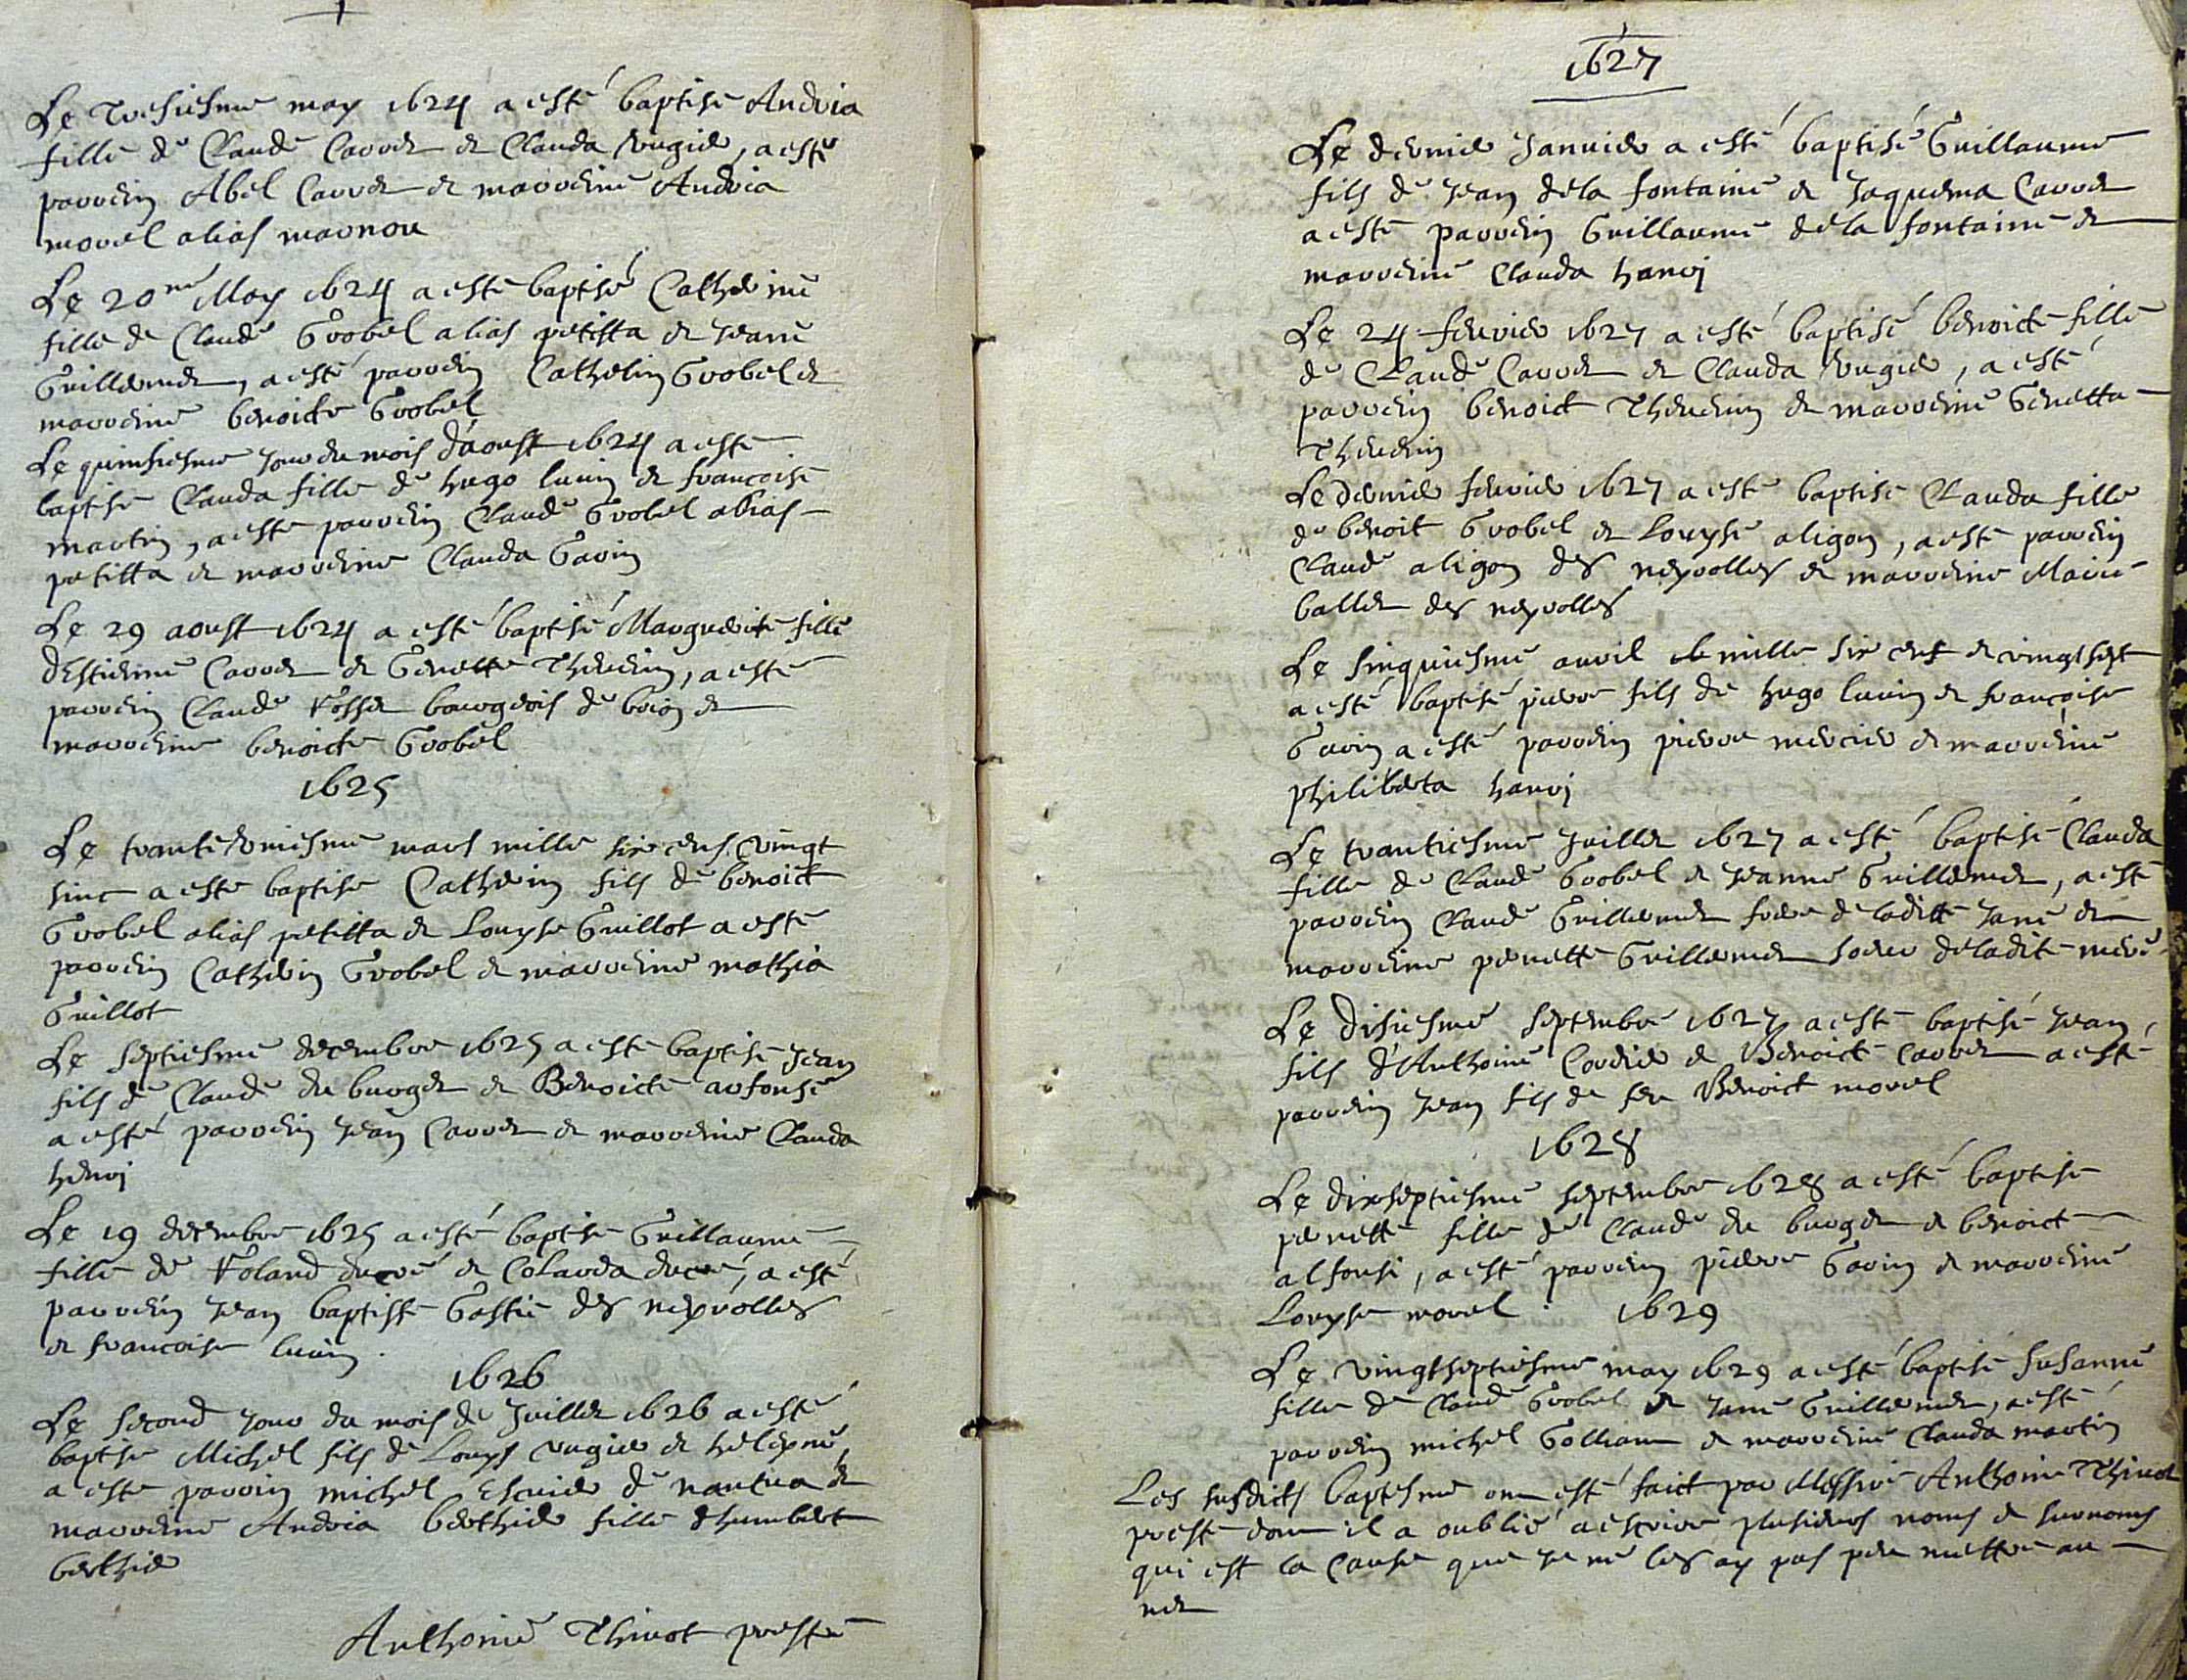 Le troisiesme may 1624 a esté baptisé Andrea
fille de Claude Carret et Clauda Vugier, a esté
parrein Abel Carret et marreine Andrea
morel alias marnou
Le 20me May 1624 a esté baptisé Catherine
fille de Claude Grobel alias petitta et Jeane
Guillermet, a esté parrein Cathelin Grobel et
marreine benoicte Grobel
Le quinsiesme jour du mois d'aoust 1624 a esté
baptisé Clauda fille de hugo luin et francoise
martin, a esté parrein Claude Grobel alias
petitta et marreine Clauda Gavin
Le 29 aoust 1624 a esté baptisé Marguerite fille
d'Estienne Carret et Genette Thevenin, a esté
parrein Claude Rosset bourgeois de brion et
marreine benoicte Grobel
1625
Le trante uniesme mars mille six cens vingt
sinc a esté baptisé Catherin fils de benoict
Grobel alias petitta et Louyse Guillot a esté
parrein Catherin Grobel et marreine mathia
Guillot
Le septiesme decembre 1625 a esté baptisé Jean
fils de Claude du burget et Benoicte anfonse
a esté parrein Jean Carret et marreine Clauda
henri
Le 19 decembre 1625 a esté baptisé Guillaume
fille de Roland ducré et Colauda ducré, a esté
parrein Jean baptiste Gostie des neyrolles
et francoise luin.
1626
Le second jour du mois de Juillet 1626 a esté
baptisé Michel fils de Louys vugier et heleyne,
a esté parrin michel Escuier de nantua et
marreine Andrea berthier fille d'humbert
berthier
Anthoine Thivot prestre
1627
Le dernier Janvier a esté baptisé Guillaume
fils de Jean de la fontaine et Jaquema Carret
a esté parrein Guillaume de la fontaine et
marreine Clauda hanri
Le 24 fevrier 1627 a esté baptisé benoicte fille
de Claude Carret et Clauda Vugier, a esté
parrein benoict Thevenin et marreine Genetta
Thevenin
Le dernier fevrier 1627 a esté baptisé Clauda fille
de benoit Grobel et Louyse aligon, a esté parrein
Claude aligon des neyrolles et marreine Marie
ballet des neyrolles
Le sinquiesme avril mille six cens et vingt sept
a esté baptisé pierre fils de hugo luin et francoise
Gavin a esté parrein pierre mercier et marreine
philiberta hanri
Le trantiesme Juillet 1627 a esté baptisé Clauda
fille de Claude Grobel et Jeanne Guillermet, a esté
parrein Claude Guillermet frere de laditte Jane et
marreine pernette Guillermet soeur de ladite mere
Le disiesme septembre 1627 a esté baptisé Jean,
fils d'Anthoine Cordier et Benoicte Carret a esté
parrein Jean fils de feu Benoict morel
1628
Le dixseptiesme septembre 1628 a esté baptisé
pernette fille de Claude du burget et benoicte
alfonsi, a esté parrein pierre Gavin et marreine
Louyse morel. 1629
Le vingtseptiesme may 1629 a esté baptisé susanne
fille de Claude Grobel et Jane Guillermet, a esté
parrein michel Golliam et marreine Clauda martin
Les susdicts baptesme ont esté faict par Messire Anthoine Thivot
prestre dont il a oublié a escrire plusieurs noms et surnoms
qui est la cause que Je ne les ay pas peu mettre au
net